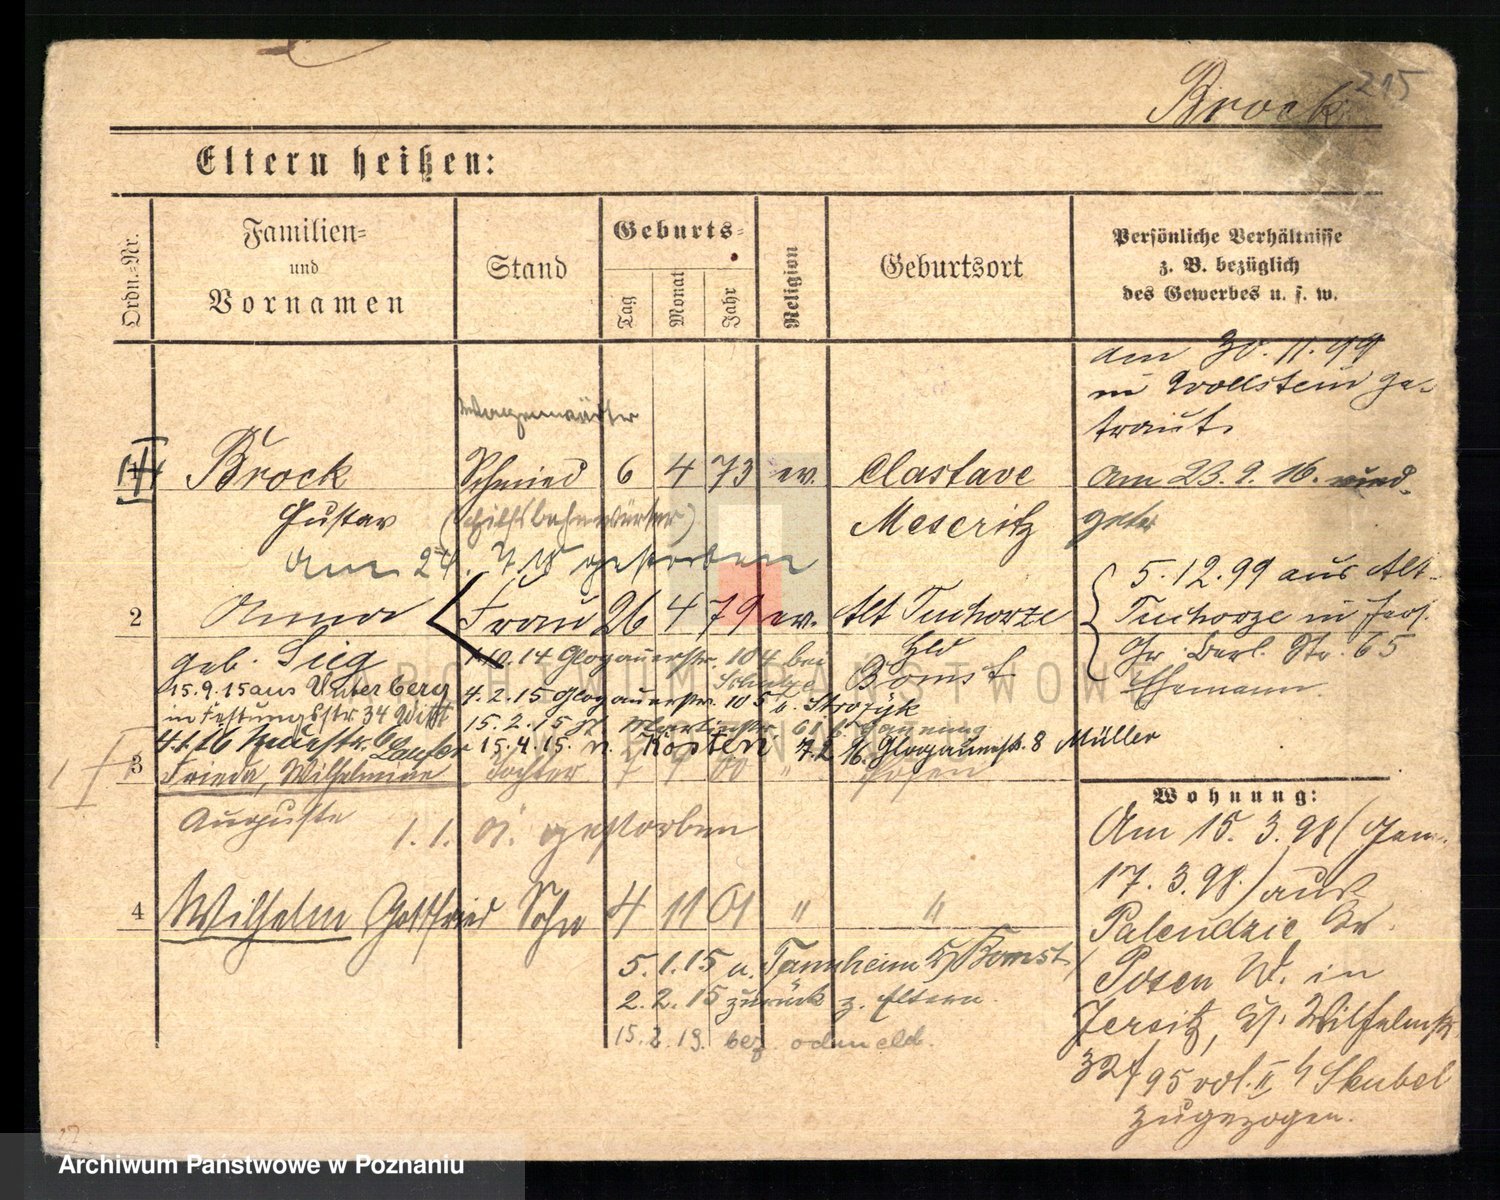 215
Brock
Eltern heißen:
Ordn.-Nr.
Familien-
und
Vornamen
Stand
Geburts-
Tag
Monat
Jahr
Religion
Geburtsort
Persönliche Verhältnisse
z. B. bezüglich
des Gewerbes u. s. w.
am 30. 11. 99
in Wollstein ge-
traut.
Wagenwärter
Brock Schmied 6 4 73 ev. Clastave
Am 23. 9. 16.
Gustav (Hilfsbahnwärter) Meseritz
am 24. 7. 18 gestorben
2 Anna Frau 26 4 79 ev. Alt Tuchorze
geb. Sieg Bomst
5. 12. 99 aus Alt-
Tuchorze in Jers.
Gr. Berl. Str. 65
Ehemann.
1.10.14 Glogauerstr. 104 bei
Schulze
15.9.15 aus Unterberg
4.2.15 Glogauerstr. 105 b. Strozyk
in Festungsstr 34 Witt
15.2.15
15.4.15. n. Kosten
Glogauerstr. 8 Müller
3 Frieda, Wilhelmine Tochter 7 9 00 " Posen
Auguste 1. 1. 01. gestorben
4 Wilhelm Gottfried Sohn 4 11 01 " "
5. 1. 15 n. Tannheim Bomst
2. 2. 15 zurück z. Eltern.
15. 2. 19.
Wohnung:
Am 15. 3. 98 (Gem.
17. 3. 98.) aus
Palendzie Kr.
Posen W. in
Jersitz, Wilhelmstr.
32/95 II Skubel
zugezogen.
ARCHIWUM PAŃSTWOWE
W POZNANIU
Archiwum Państwowe w Poznaniu